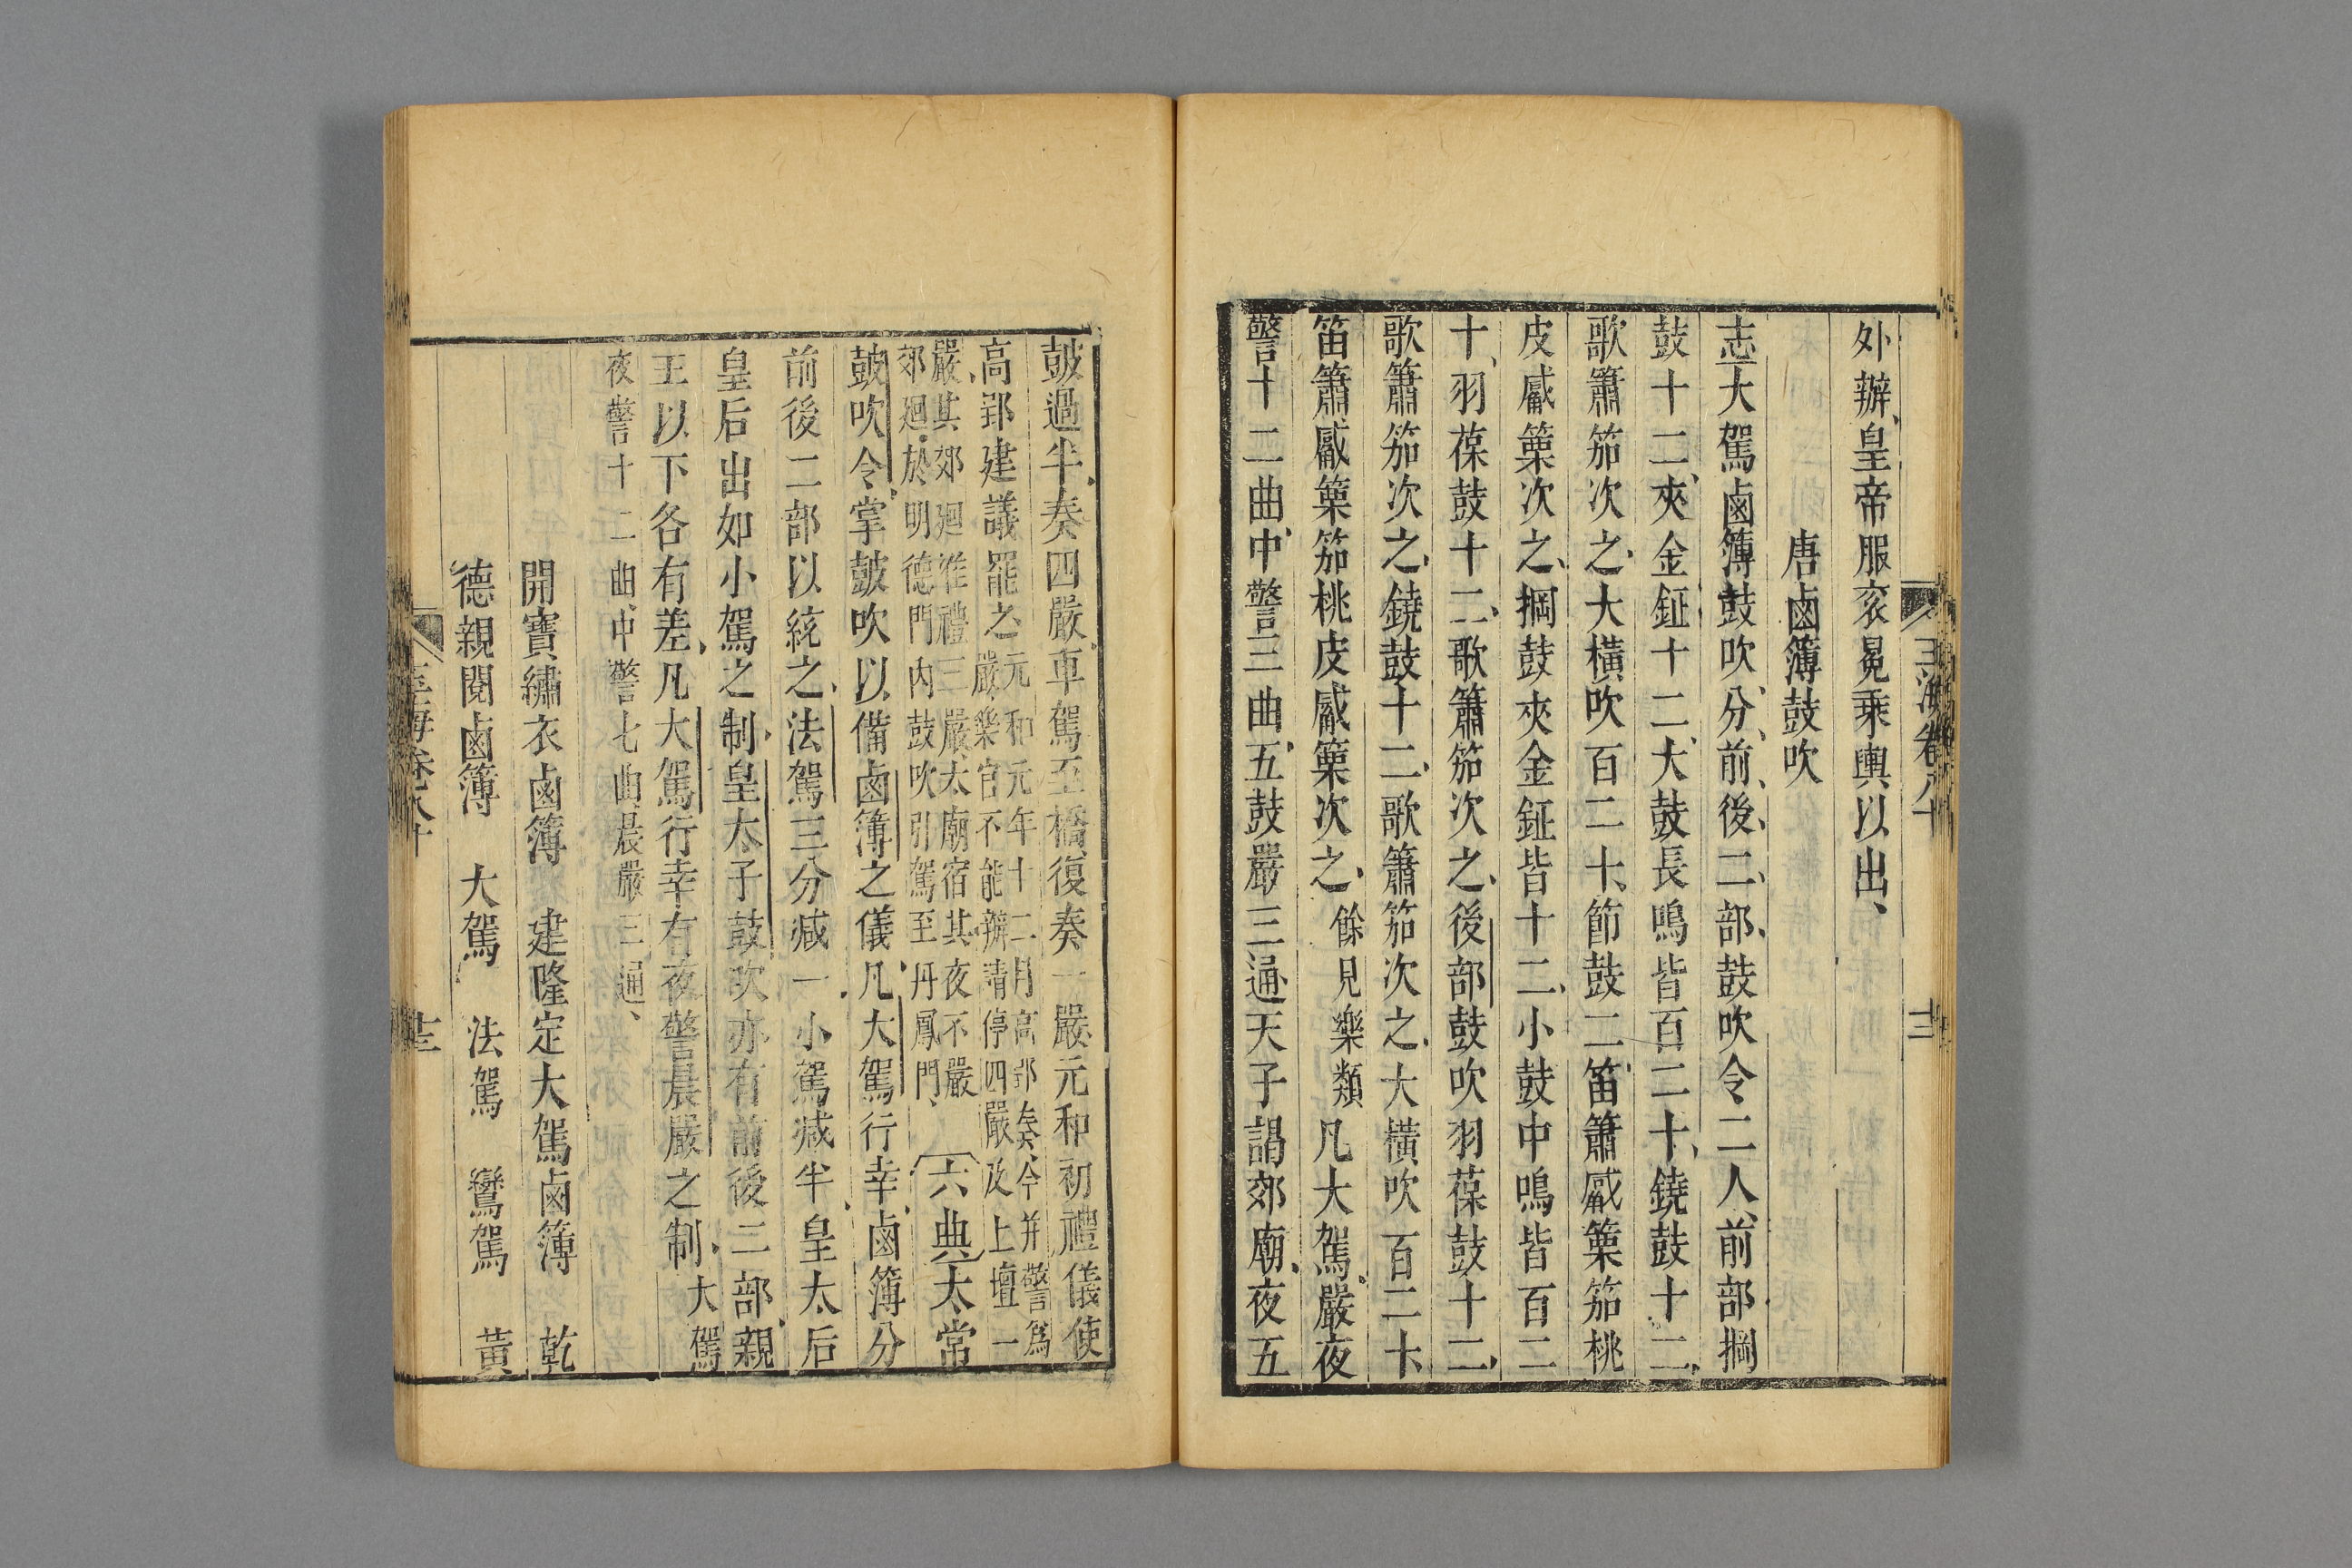 玉海卷八十
十二
外辦、皇帝服衮冕乘輿以出、
唐鹵簿鼓吹
志大駕鹵簿鼓吹分、前、後、二、部、鼓吹令二人、前部㭎
鼓十二、夾金鉦十二、大鼓長鳴皆百二十、鐃鼓十二、
歌簫笳次之、大橫吹百二十、節鼓二、笛簫觱篥笳桃
皮觱篥次之、掆鼓夾金鉦皆十二、小鼓中鳴皆百二
十、羽葆鼓十二、歌簫笳次之、後部鼓吹羽葆鼓十二、
歌簫笳次之、鐃鼓十二、歌簫笳次之、大橫吹百二十、
笛簫觱篥笳桃皮觱篥次之、餘見樂類凡大駕嚴夜
警十二曲、中警三曲、五鼓嚴三通天子謁郊廟、夜五
鼓過半、奏四嚴、車駕至橋、復奏一嚴元和初禮儀使
高郢建議罷之元和元年十二月高郢奏、今并警爲
嚴、樂官不能辦、請停四嚴及上壇一
嚴、其郊廻准禮三嚴、太廟宿其夜不嚴
郊廻於明德門內鼓吹引駕至丹鳳門、六典太常
鼓吹令、掌鼓吹以備鹵簿之儀、凡大駕行幸、鹵簿分
前後二部以統之、法駕三分减一、小駕减半、皇太后
皇后出如小駕之制、皇太子鼓吹亦有前後二部、親
王以下各有差、凡大駕行幸有夜警晨嚴之制、大駕
夜警十二曲、中警七曲晨嚴三通、
開寶繡衣鹵簿 建隆定大駕鹵簿 乾
德親閱鹵簿 大駕 法駕 鸞駕 黃
玉海卷八十
十三